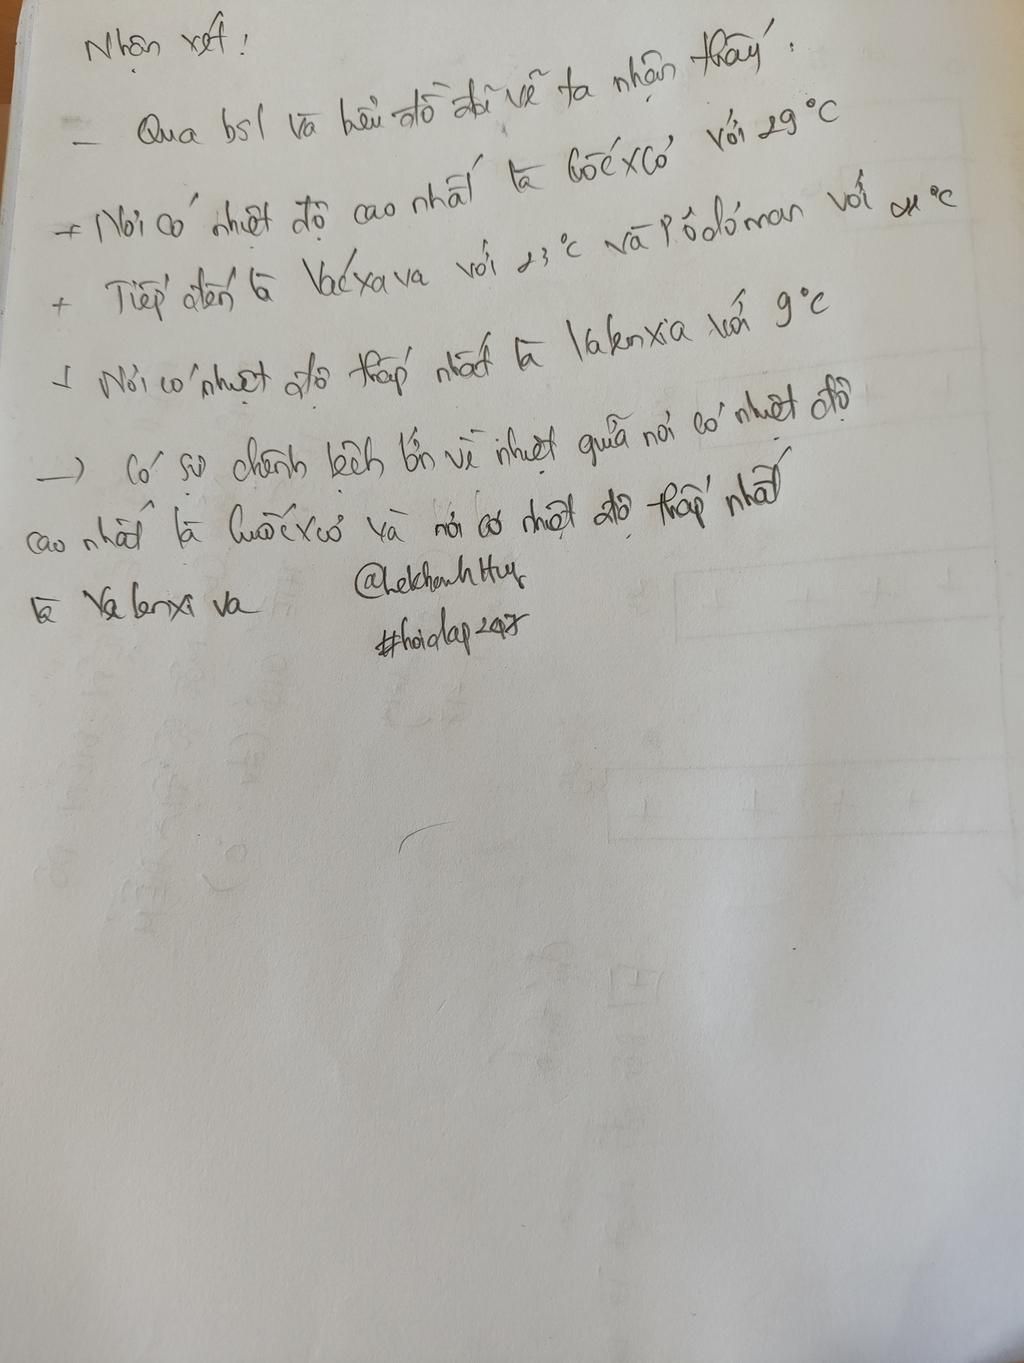 Nhận xét:
- Qua bsl và biểu đồ đã vẽ ta nhận thấy:
+ Nơi có nhiệt độ cao nhất là Cuốcxcơ với 29°C
+ Tiếp đến là Vácxava với 23°C và Pôdơman với 21°C
+ Nơi có nhiệt độ thấp nhất là Valenxia với 9°C
→ Có sự chênh lệch lớn về nhiệt giữa nơi có nhiệt độ
cao nhất là Cuốcxcơ và nơi có nhiệt độ thấp nhất
là Valenxi va
@LeKhanhHuy
#hoidap247